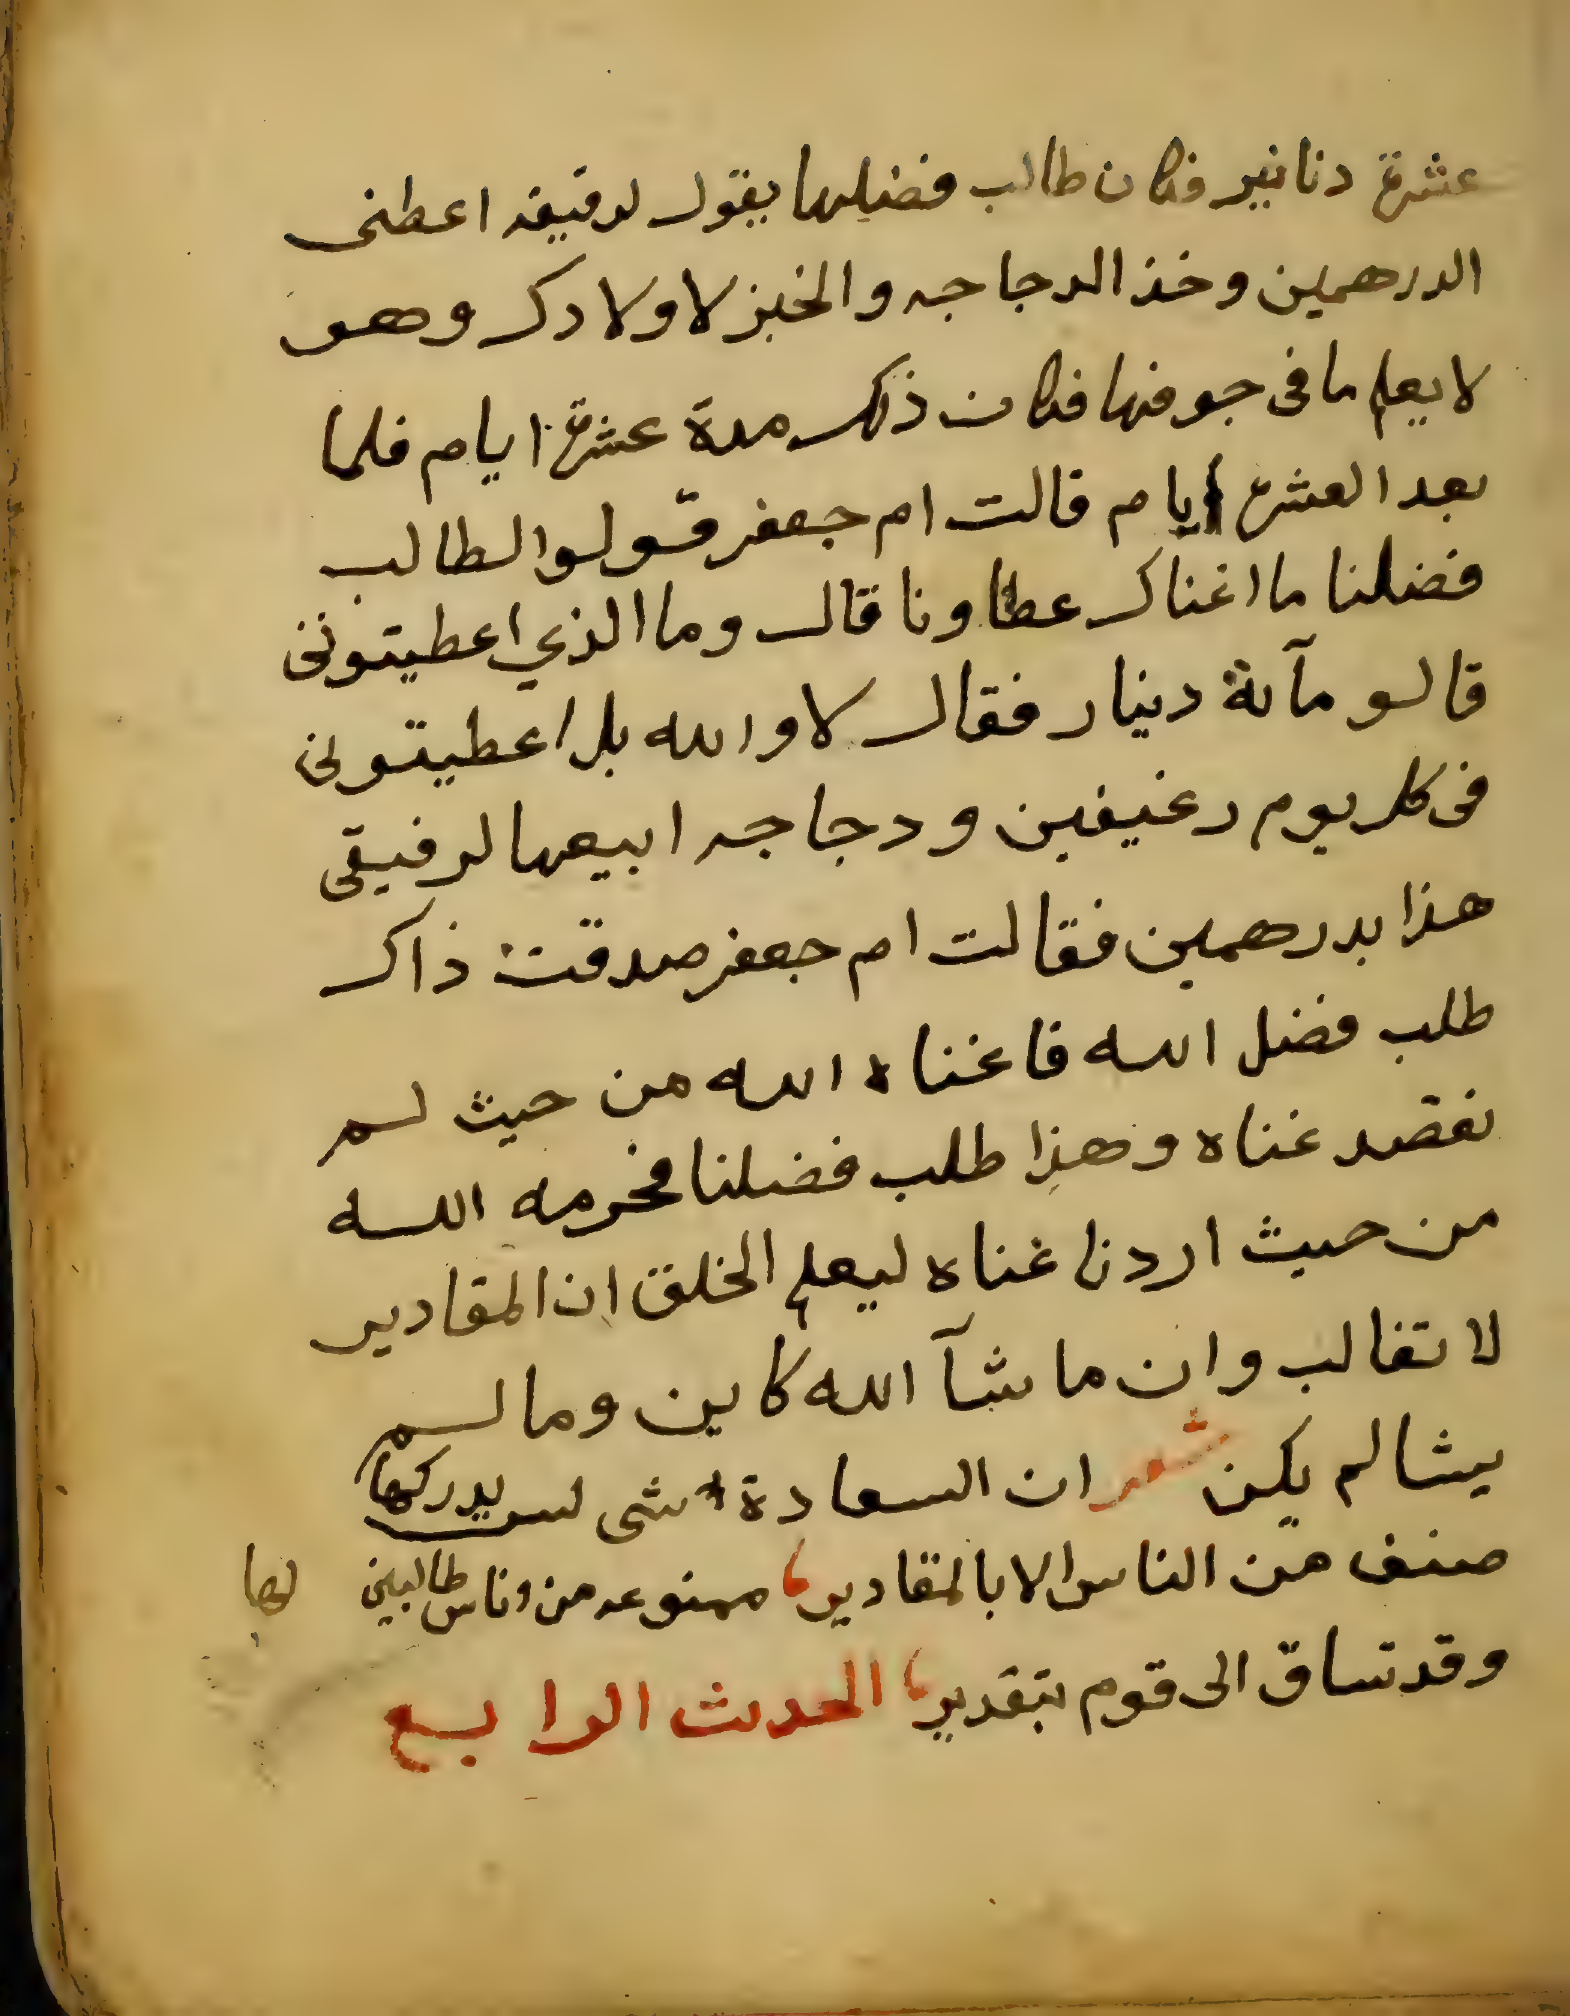 عشرة دنانير فكان طالب فضلها يقول لرفيقه اعطنى
الدرهمين وخذ الدجاجه والخبز لاولادك وهو
لا يعلم ما فى جوفها فكان ذلك مدة عشرة ايام فلما
بعد العشرة ايام قالت ام جعفر قولوا لطالب
فضلنا ما اغناك عطاونا قال وما الذي اعطيتونى
قالو مآئة دينار فقال لا والله بل اعطيتونى
فى كل يوم رغيفين ودجاجه ابيعها لرفيقى
هذا بدرهمين فقالت ام جعفر صدقت ذاك
طلب فضل الله فاغناه الله من حيث لم
نقصد غناه وهذا طلب فضلنا فحرمه الله
من حيث اردنا غناه ليعلم الخلق ان المقادير
لا تغالب وان ما شآ الله كاين وما لم
يشا لم يكن شعر ان السعادة شى ليس يدركها
صنف من الناس الا بالمقادير ممنوعه من اناس طالبين لها
وقد تساق الى قوم بتقدير الحدث الرابع